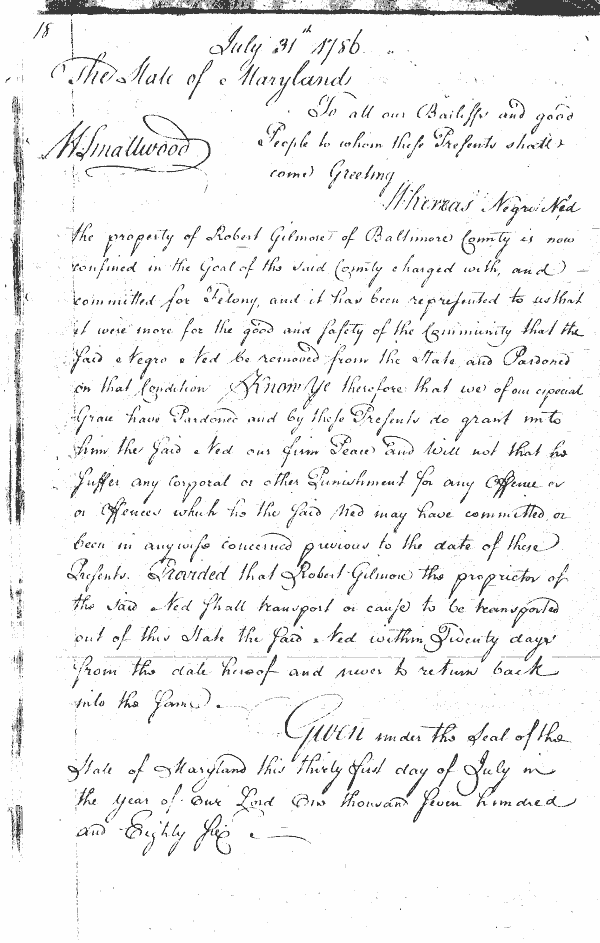 18
July 31th 1786
The State of Maryland
To all our Bailiffs and good
WSmallwood
People to whom these Presents shall
come Greeting
Whereas Negro Ned
the property of Robert Gilmore of Baltimore County is now
confined in the Goal of the said County charged with, and
committed for Felony, and it has been represented to us that
it were more for the good and Safety of the Community that the
Said Negro Ned be removed from the State and Pardoned
on that Condition Know Ye therefore that we of our especial
Grace have Pardoned and by these Presents do grant unto
him the Said Ned our firm Peace and Will not that he
Suffer any corporal or other Punishment for any Offence or
or Offences which he the Said Ned may have committed or
been in anywise concerned previous to the date of these
Presents. Provided that Robert Gilmore the proprietor of
the said Ned Shall transport or cause to be transported
out of this State the Said Ned within Twenty days
from the date hereof and never to return back
into the Same.
Given under the Seal of the
State of Maryland this thirty first day of July in
the year of our Lord One thousand Seven hundred
and Eighty Six